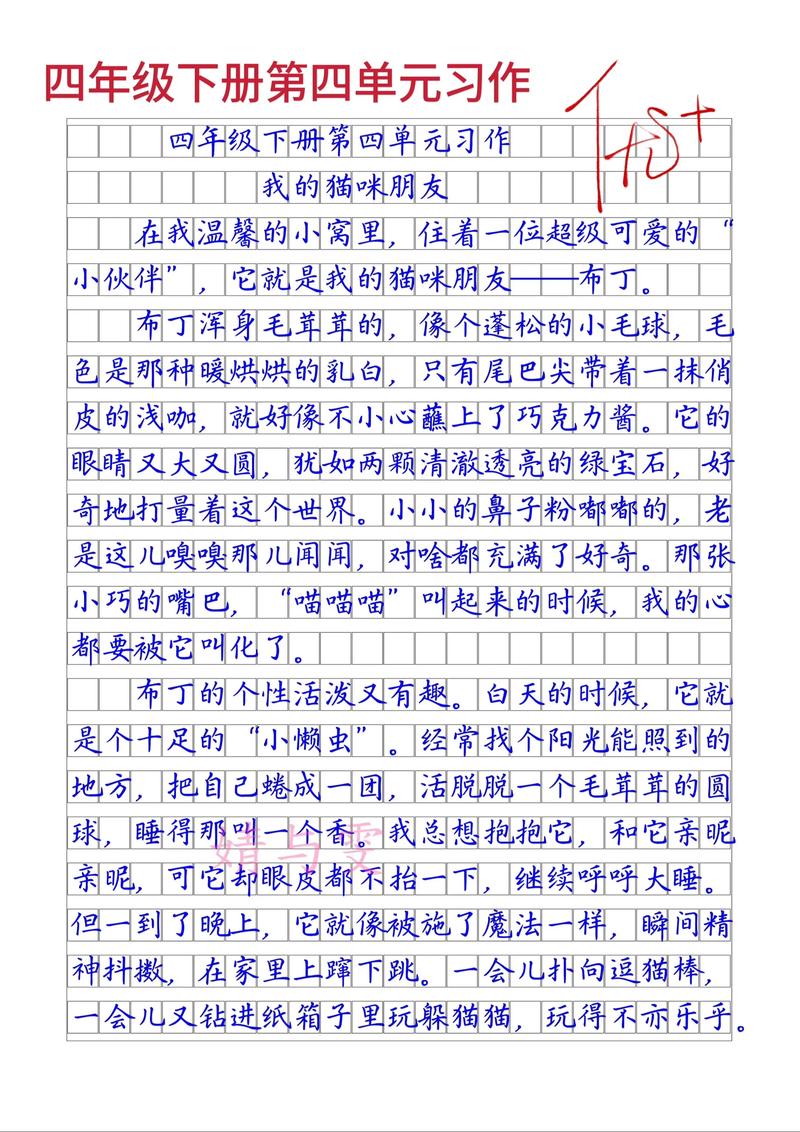 四年级下册第四单元习作
优+
四年级下册第四单元习作
我的猫咪朋友
在我温馨的小窝里，住着一位超级可爱的“
小伙伴”，它就是我的猫咪朋友——布丁。
布丁浑身毛茸茸的，像个蓬松的小毛球，毛
色是那种暖烘烘的乳白，只有尾巴尖带着一抹俏
皮的浅咖，就好像不小心蘸上了巧克力酱。它的
眼睛又大又圆，犹如两颗清澈透亮的绿宝石，好
奇地打量着这个世界。小小的鼻子粉嘟嘟的，老
是这儿嗅嗅那儿闻闻，对啥都充满了好奇。那张
小巧的嘴巴，“喵喵喵”叫起来的时候，我的心
都要被它叫化了。
布丁的个性活泼又有趣。白天的时候，它就
是个十足的“小懒虫”。经常找个阳光能照到的
地方，把自己蜷成一团，活脱脱一个毛茸茸的圆
球，睡得那叫一个香。我总想抱抱它，和它亲昵
亲昵，可它却眼皮都不抬一下，继续呼呼大睡。
但一到了晚上，它就像被施了魔法一样，瞬间精
神抖擞，在家里上蹿下跳。一会儿扑向逗猫棒，
一会儿又钻进纸箱子里玩躲猫猫，玩得不亦乐乎。
婧与雯